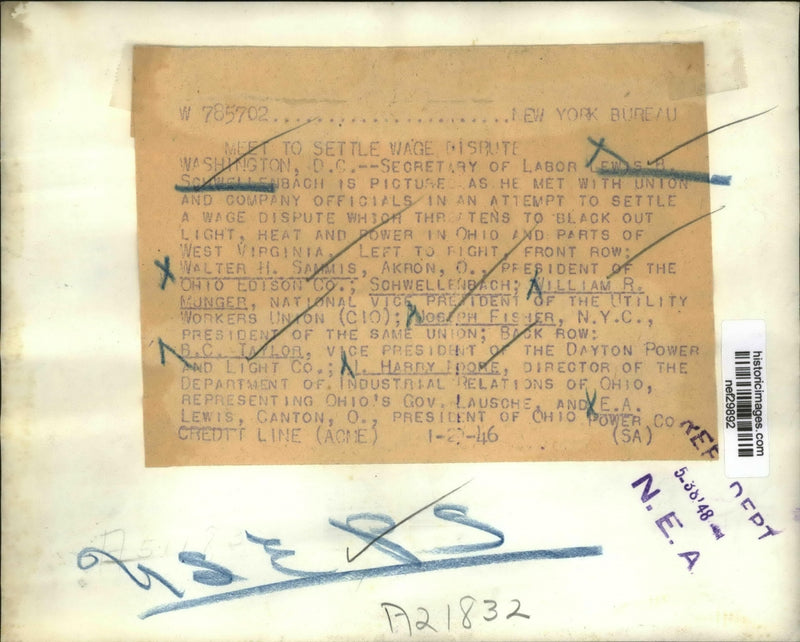 W 785702.......................NEW YORK BUREAU
MEET TO SETTLE WAGE DISPUTE
WASHINGTON, D.C.--SECRETARY OF LABOR LEWIS B.
SCHWELLENBACH IS PICTURED AS HE MET WITH UNION
AND COMPANY OFFICIALS IN AN ATTEMPT TO SETTLE
A WAGE DISPUTE WHICH THREATENS TO BLACK OUT
LIGHT, HEAT AND POWER IN OHIO AND PARTS OF
WEST VIRGINIA. LEFT TO RIGHT, FRONT ROW:
WALTER H. SAMMIS, AKRON, O., PRESIDENT OF THE
OHIO EDISON CO.; SCHWELLENBACH; WILLIAM R.
MUNGER, NATIONAL VICE PRESIDENT OF THE UTILITY
WORKERS UNION (CIO); JOSEPH FISHER, N.Y.C.,
PRESIDENT OF THE SAME UNION; BACK ROW:
B.C. TAYLOR, VICE PRESIDENT OF THE DAYTON POWER
AND LIGHT CO.; HARRY, DIRECTOR OF THE
DEPARTMENT OF INDUSTRIAL RELATIONS OF OHIO,
REPRESENTING OHIO'S GOV. LAUSCHE, AND E.A.
LEWIS, CANTON, O., PRESIDENT OF OHIO POWER CO.
CREDIT LINE (ACME) 1-2-46 (SA)
historicimages.com
nef29892
REF. DEPT
N.E.A.
A21832